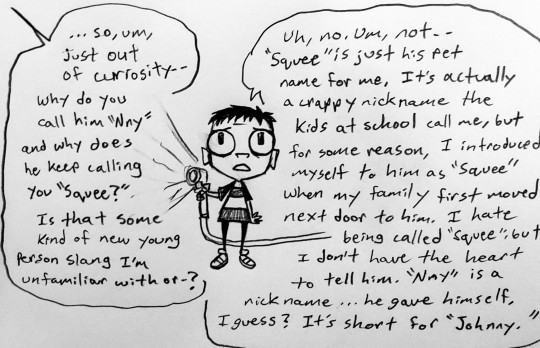 ... so, um,
just out
of curiosity--
why do you
call him "Nny"
and why does
he keep calling
you "Squee?"
Is that some
kind of new young
person slang I'm
unfamiliar with or-?
Uh, no. Um, not--
"Squee" is just his pet
name for me. It's actually
a crappy nickname the
kids at school call me, but
for some reason, I introduced
myself to him as "Squee"
when my family first moved
next door to him. I hate
being called "Squee", but
I don't have the heart
to tell him. "Nny" is a
nickname ... he gave himself,
I guess? It's short for "Johnny."